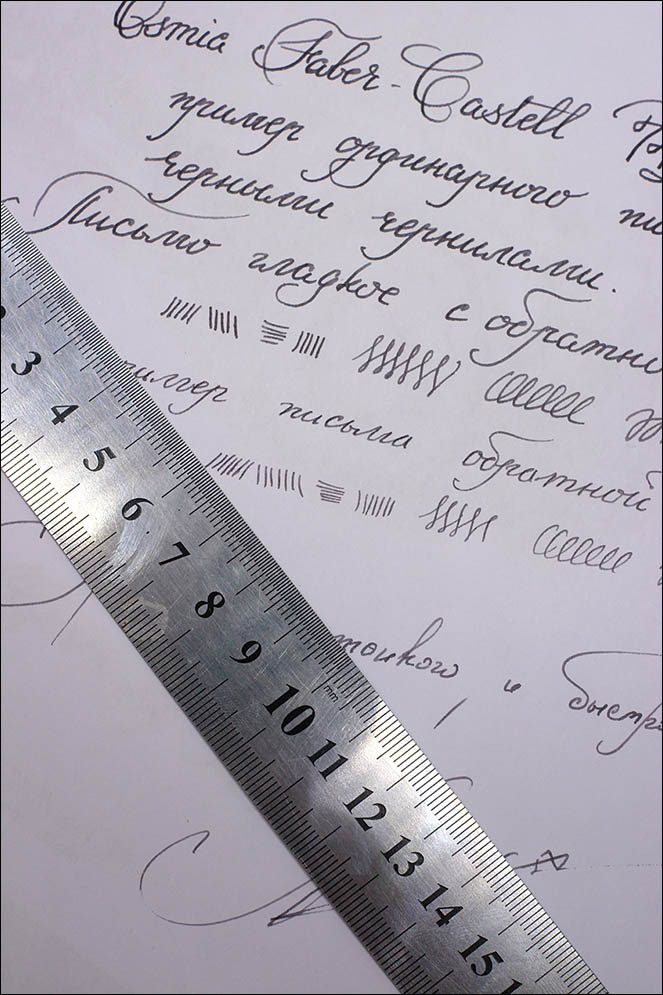 Osmia Faber-Castell
пример ординарного
черными чернилами.
Письмо гладкое с обратно
пример письма обратной
тонкого и быстро
3 4 5 6 7 8 9 10 11 12 13 14 15
mm